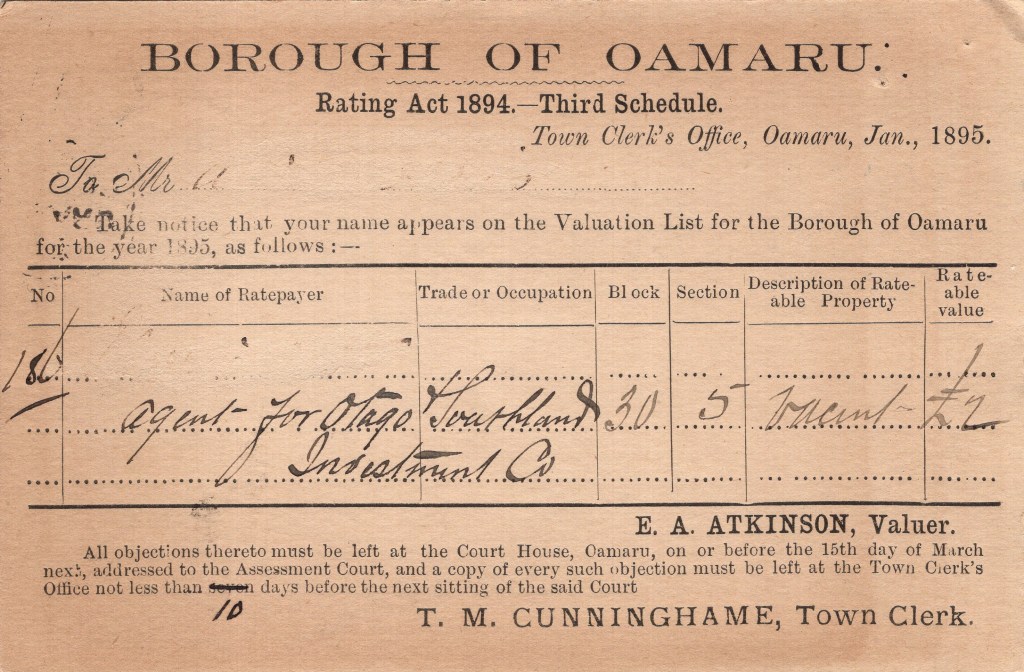 BOROUGH OF OAMARU.
Rating Act 1894.—Third Schedule.
Town Clerk's Office, Oamaru, Jan., 1895.
To Mr
Take notice that your name appears on the Valuation List for the Borough of Oamaru
for the year 1895, as follows:—
No Name of Ratepayer Trade or Occupation Block Section Description of Rate-able Property Rate-able value
agent for Otago & Southland 30 5 Vacant £2
Investment Co
E. A. ATKINSON, Valuer.
All objections thereto must be left at the Court House, Oamaru, on or before the 15th day of March
next, addressed to the Assessment Court, and a copy of every such objection must be left at the Town Clerk's
Office not less than seven days before the next sitting of the said Court
10
T. M. CUNNINGHAME, Town Clerk.